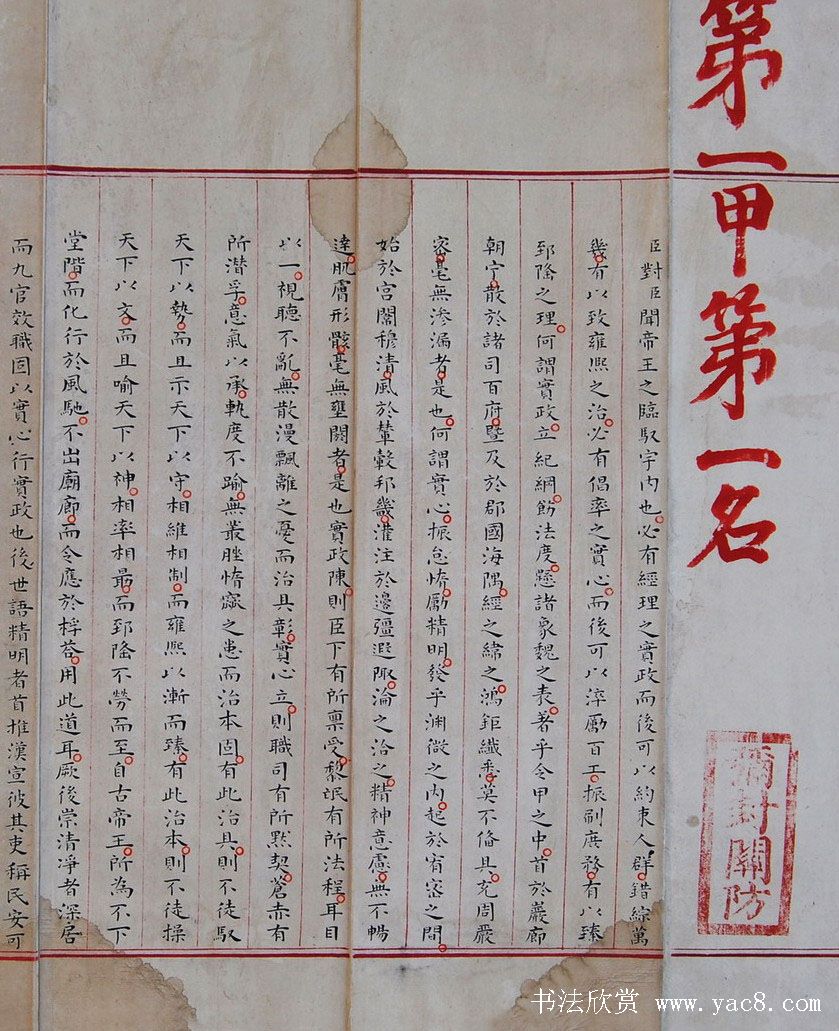 第一甲第一名
彌封關防
臣對臣聞帝王之臨馭宇內也必有經理之實政而後可以約束人群錯綜萬
幾有以致雍熙之治必有倡率之實心而後可以淬勵百工振刷庶務有以臻
郅隆之理何謂實政立紀綱飭法度懸諸象魏之表著乎令甲之中首於巖廊
朝宁散於諸司百府暨及於郡國海隅經之緯之鴻鉅纖悉莫不備具充周嚴
密毫無滲漏者是也何謂實心振怠惰勵精明發乎淵微之內起於宥密之間
始於宮闈穆清風於輦轂邦畿灌注於邊疆遐陬淪之洽之精神意慮無不暢
達肌膚形骸毫無壅閼者是也實政陳則臣下有所稟受黎氓有所法程耳目
以一視聽不亂無散漫飄離之憂而治具彰實心立則職司有所默契蒼赤有
所潛孚意氣以承軌度不踰無叢脞惰窳之患而治本固有此治具則不徒馭
天下以勢而且示天下以守相維相制而雍熙以漸而臻有此治本則不徒操
天下以文而且喻天下以神相率相最而郅隆不勞而至自古帝王所為不下
堂階而化行於風馳不出廟廊而令應於桴荅用此道耳厥後崇清淨者深居
而九官效職固以實心行實政也後世語精明者首推漢宣彼其吏稱民安可
书法欣赏 www.yac8.com